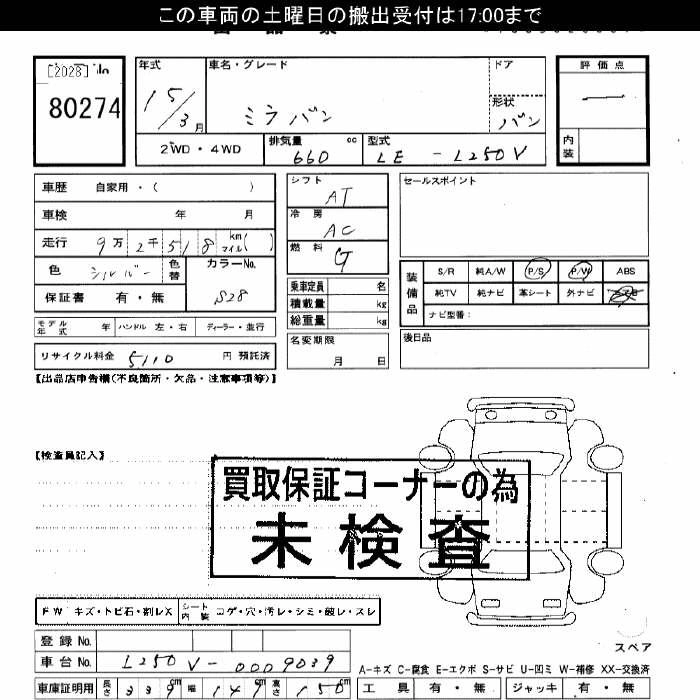 この車両の土曜日の搬出受付は17:00まで
[2028] No
80274
年式 車名・グレード ドア 評価点
15/3月 ミラバン 形状 バン
2WD・4WD 排気量 660 cc 型式 LE - L250V 内装
車歴 自家用・( )
車検 年 月
走行 9万 2千 518 km マイル( )
色 シルバー 色替 カラーNo. S28
保証書 有・無
モデル年式 年 ハンドル 左・右 ディーラー・並行
リサイクル料金 5110 円 預託済
シフト AT
冷房 AC
燃料 G
乗車定員 名
積載量 kg
総重量 kg
名変期限 月 日
セールスポイント
装備品 S/R 純A/W P/S P/W ABS
純TV 純ナビ 革シート 外ナビ
ナビ型番:
後日品
【出品店申告欄(不良箇所・欠品・注意事項等)】
【検査員記入】
買取保証コーナーの為
未検査
FW キズ・トビ石・割レX シート内装 コゲ・穴・汚レ・シミ・破レ・スレ
登録No.
車台No. L250V-0009039
スペア
A-キズ C-腐食 E-エクボ S-サビ U-凹ミ W-補修 XX-交換済
車庫証明用 長さ 339cm 幅 147cm 高さ 150cm 工具 有・無 ジャッキ 有・無